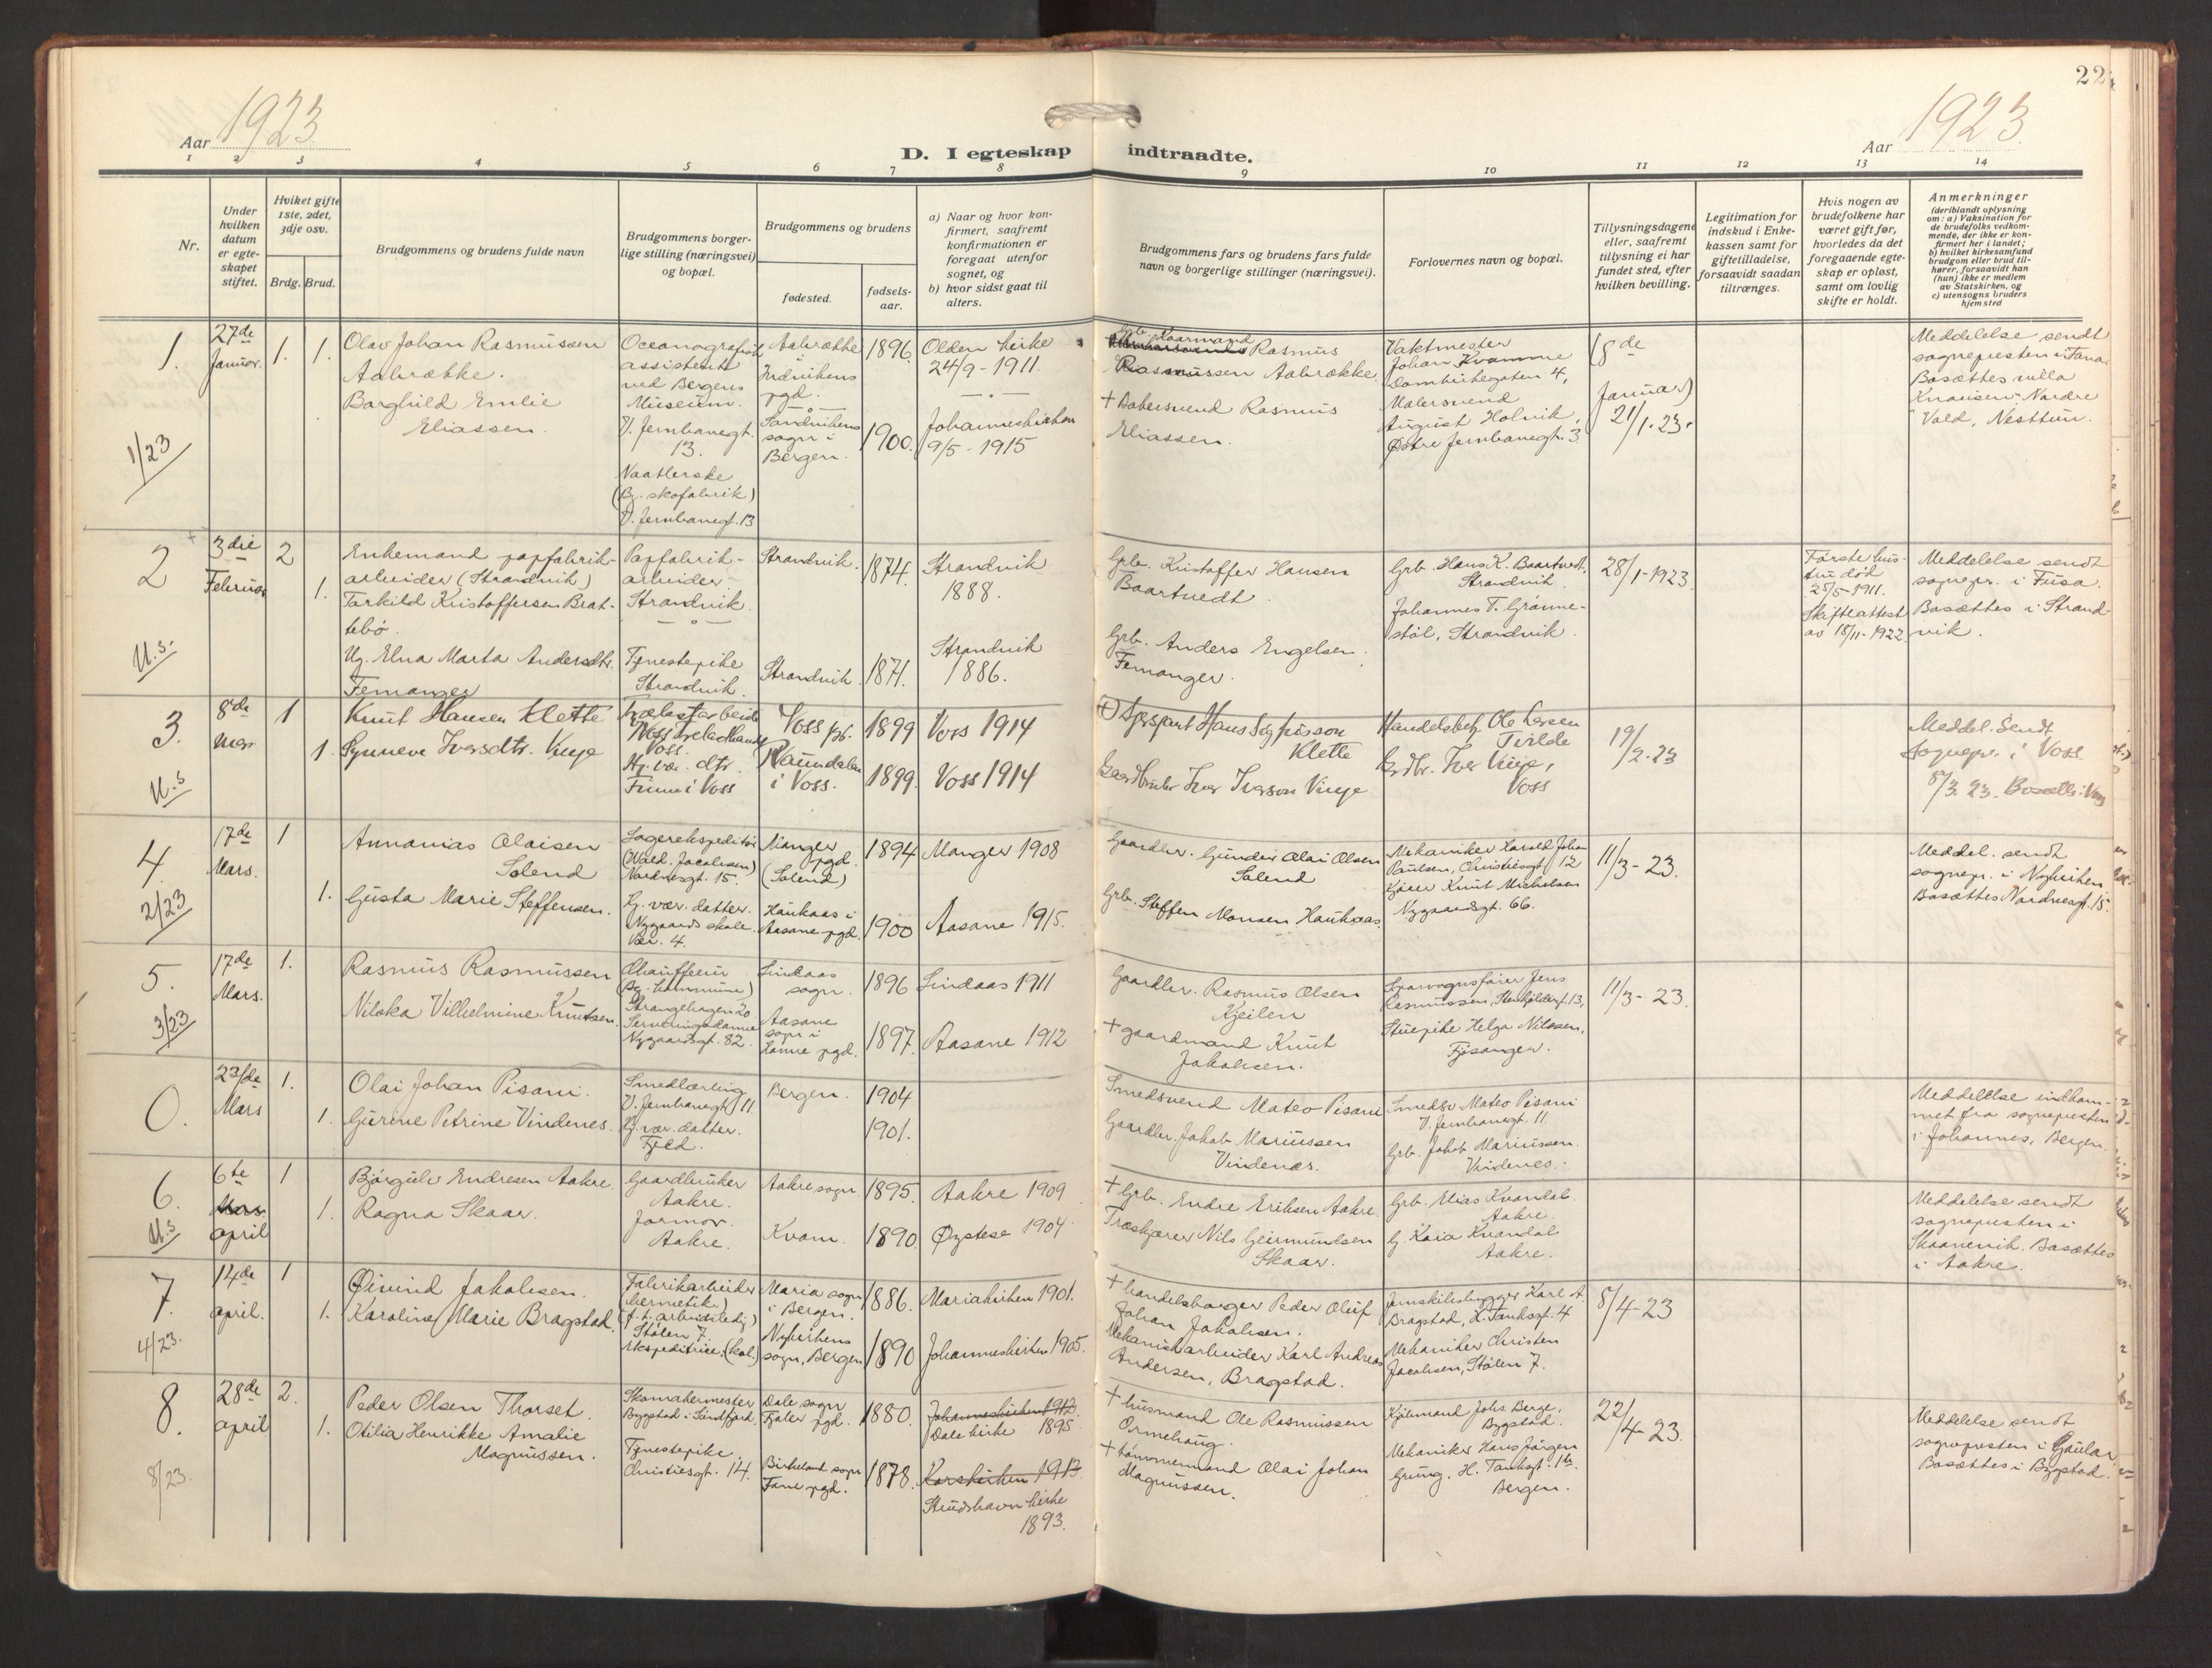 22
Aar 1923.
Aar 1923.
D. I egteskap indtraadte.
1 2 3 4 5 6 7 8 9 10 11 12 13 14
Nr.
Under
hvilken
datum
er egte-
skapet
stiftet.
Hviket gifte
1ste, 2det,
3dje osv.
Brdg. Brud.
Brudgommens og brudens fulde navn
Brudgommens borger-
lige stilling (næringsvei)
og bopæl.
Brudgommens og brudens
fødested.
fødsels-
aar.
a) Naar og hvor kon-
firmert, saafremt
konfirmationen er
foregaat utenfor
sognet, og
b) hvor sidst gaat til
alters.
Brudgommens fars og brudens fars fulde
navn og borgerlige stillinger (næringsvei).
Forlovernes navn og bopæl.
Tillysningsdagene
eller, saafremt
tillysning ei har
fundet sted, efter
hvilken bevilling.
Legitimation for
indskud i Enke-
kassen samt for
giftetilladelse,
forsaavidt saadan
tiltrænges.
Hvis nogen av
brudefolkene har
været gift før,
hvorledes da det
foregaaende egte-
skap er opløst,
samt om lovlig
skifte er holdt.
Anmerkninger
(deriblandt oplysning
om: a) Vaksination for
de brudefolks vedkom-
mende, der ikke er kon-
firmert her i landet;
b) hvilket kirkesamfund
brudgom eller brud til-
hører, forsaavidt han
(hun) ikke er medlem
av Statskirken, og
c) utensogns bruders
hjemsted
1.
1/23
27de
Januar.
1. 1.
Olav Johan Rasmussen
Aabrække.
Borghild Emilie
Eliassen.
Oceanografisk
assistent
ved Bergens
Museum.
V. Jernbanegt.
13.
Naatlerske
(Bg. skofabrik)
V. Jernbanegt. 13
Aabrække
Indvikens
pgd.
Sandvikens
sogn i
Bergen.
1896
1900.
Olden kirke
24/9-1911.
Johanneskirken
9/5-1915
Rasmus
Rasmussen Aabrække.
+ Bøkersvend Rasmus
Eliassen.
Vaktmester
Johan Kvamme
Domkirkegaten 4,
Malersvend
August Holvik,
Østre Jernbanegt. 3
(8de
Januar)
21/1-23.
Meddelelse sendt
sognepresten i Fana.
Bosættes villa
Knausen, Nordre
Vold, Nesttun.
2
U.s.
3die
Februar
2
1.
Enkemand papfabrik-
arbeider (Strandvik)
Torkild Kristoffersen Brat-
tebø.
Ug. Elna Marta Andersdtr.
Femanger
Papfabrik-
arbeider
Strandvik.
Tjenestepike
Strandvik.
Strandvik.
Strandvik.
1874.
1871.
Strandvik
1888.
Strandvik
1886.
Grb. Kristoffer Hansen
Baartvedt.
Grb. Anders Engelsen
Femanger.
Grb. Hans K. Baartvedt,
Strandvik.
Johannes T. Grønne-
støl, Strandvik.
28/1-1923
Første hus-
tru død
25/5-1911.
Skifteattest
av 18/11-1922
Meddelelse sendt
sognepr. i Fusa.
Bosættes i Strand-
vik.
3.
U.s
8de
mars
1
1.
Knut Hansen Klette
Synneve Iversdtr. Vinje
Voss Trælasthandel
Voss.
Hj. vær. dtr.
Finne i Voss
Voss pr.
Raundalen
i Voss.
1899
1899.
Voss 1914
Voss 1914
Klette
Gaardbruker Iver Iverson Vinje
Handelsbetj. Ole Larsen
Tvilde
Grdbr. Iver Vinje,
Voss
19/2-23
Meddel. Sendt
sognepr. i Voss
8/3. 23. Bosættes i Voss
4.
2/23
17de
Mars.
1
1.
Annanias Olaisen
Solend
Gusta Marie Steffensen.
Lagerekspeditør
(Vald. Jacobsen)
Nordnesgt. 15.
Hj. vær. datter.
Nygaards skole
Vær. 4.
Manger
pgd.
(Solend)
Haukaas i
Aasane pgd.
1894
1900
Manger 1908
Aasane 1915.
Gaardbr. Gunder Olai Olsen
Solend
Grb. Steffen Monsen Haukaas.
Mekaniker Harald Johan
Paulsen, Christiesgt. 12
Kjører Knut Michelsen
Nygaardsgt. 66.
11/3-23.
Meddel. sendt
sognepr. i Nykirken.
Bosættes Nordnesgt. 15.
5.
3/23
17de
Mars.
1.
Rasmus Rasmussen
Nilska Vilhelmine Knutsen.
Chauffeur
(Bg. kommune)
Strangehagen 20
Serveringsdame
Nygaardsgt. 82.
Lindaas
sogn.
Aasane
sogn i
Hamre pgd.
1896
1897.
Lindaas 1911
Aasane 1912
Gaardbr. Rasmus Olsen
Kjeilen
+ gaardmand Knut
Jakobsen.
Sporvognsfører Jens
Rasmussen,
Stuepike Helga Nilssen,
Fjøsanger.
11/3-23.
0.
23/de
Mars
1.
1.
Olai Johan Pisani.
Gurine Petrine Vindenes.
Smedlærling
V. Jernbanegt 11
Hj. vær. datter.
Fjeld.
Bergen.
1904
1901.
Smedsvend Mateo Pisani
Gaardbr. Jakob Mariussen
Vindenes.
Smedsv Mateo Pisani
V. Jernbanegt. 11.
Grb. Jakob Mariussen
Vindenes.
Meddelelse indkom-
met fra sognepresten
i Johannes, Bergen.
6.
U.s
6te
Mars
april
1
1.
Bjørgulv Endresen Aakre.
Ragna Skaar.
Gaardbruker
Aakre.
Jormor.
Aakre.
Aakre sogn.
Kvam.
1895.
1890.
Aakre 1909
Øystese 1904.
+ Grb. Endre Eriksen Aakre.
Træskjærer Nils Geirmundsen
Skaar.
Grb. Elias Kvandal
Aakre.
G. Kaia Kvandal
Aakre.
Meddelelse sendt
sognepresten i
Skaanevik. Bosættes
i Aakre.
7.
4/23.
14de
april.
1
1.
Øivind Jakobsen.
Karoline Marie Bragstad.
Fabrikarbeider
(hermetik)
(f. t. arbeidsledig)
Stølen 7.
Ekspeditrice. (kol.)
Maria sogn
i Bergen.
Nykirkens
sogn, Bergen
1886.
1890
Mariakirken 1901.
Johanneskirken 1905.
+ handelsborger Peder Oluf
Johan Jakobsen.
Mekanisk arbeider Karl Andreas
Andersen, Bragstad.
Jernskibsbygger Karl A.
Bragstad, H. Tanksgt. 4
Mekaniker Christen
Jacobsen, Stølen 7.
8/4-23
8.
8/23.
28de
april
2.
1.
Peder Olsen Thorset.
Otilia Henrikke Amalie
Magnussen.
Skomakermester
Bygstad i Søndfjord.
Tjenestepike
Christiesgt. 14.
Dale sogn
Fjaler pgd.
Birkeland sogn
Fane pgd.
1880.
1878.
Johanneskirken 1912.
Dale kirke 1895
Korskirken 1913
Strudshavn kirke
1893.
+ husmand Ole Rasmussen
Ormehaug.
+ tømmermand Olai Johan
Magnussen.
Kjøbmand Johs Berge,
Bygstad.
Mekaniker Hans Jørgen
Grung, H. Tanksgt. 16.
Bergen.
22/4-23.
Meddelelse sendt
sognepresten i Gaular.
Bosættes i Bygstad.